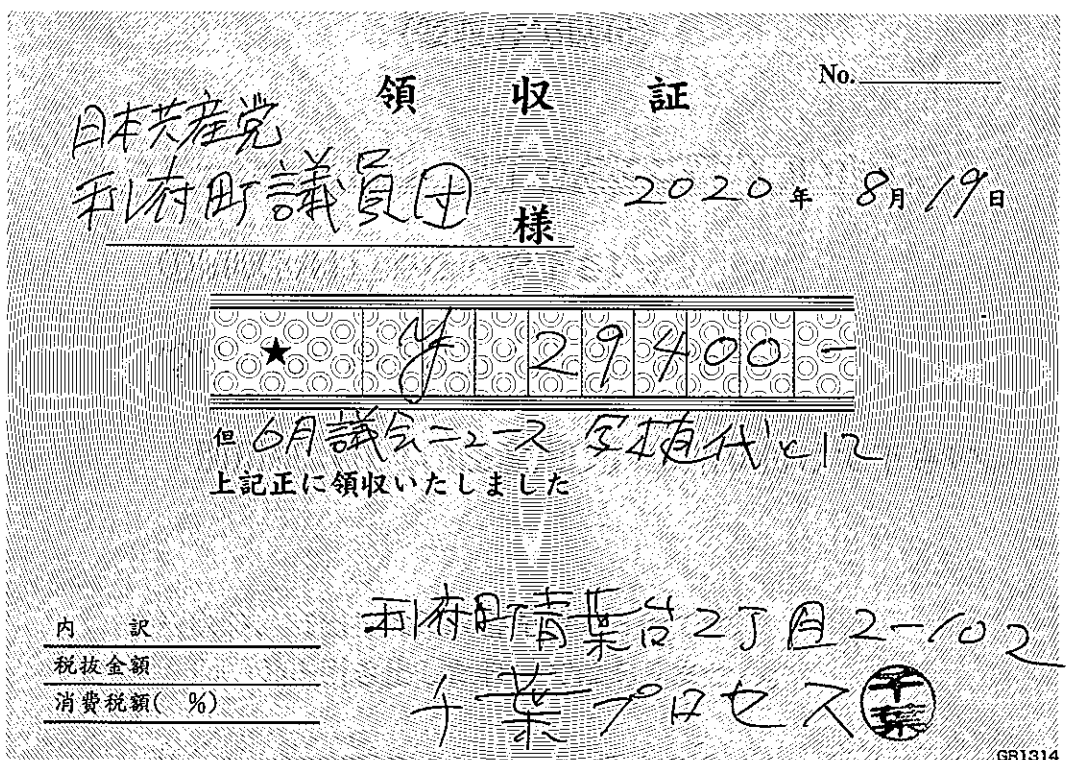 領収証
No.
日本共産党
利府町議員団 様
2020年 8月19日
★ ¥ 29400-
但 6月議会ニュース 写植代として
上記正に領収いたしました
内訳
税抜金額
消費税額( %)
利府町青葉台2丁目2-102
千葉プロセス 千葉
GR1314